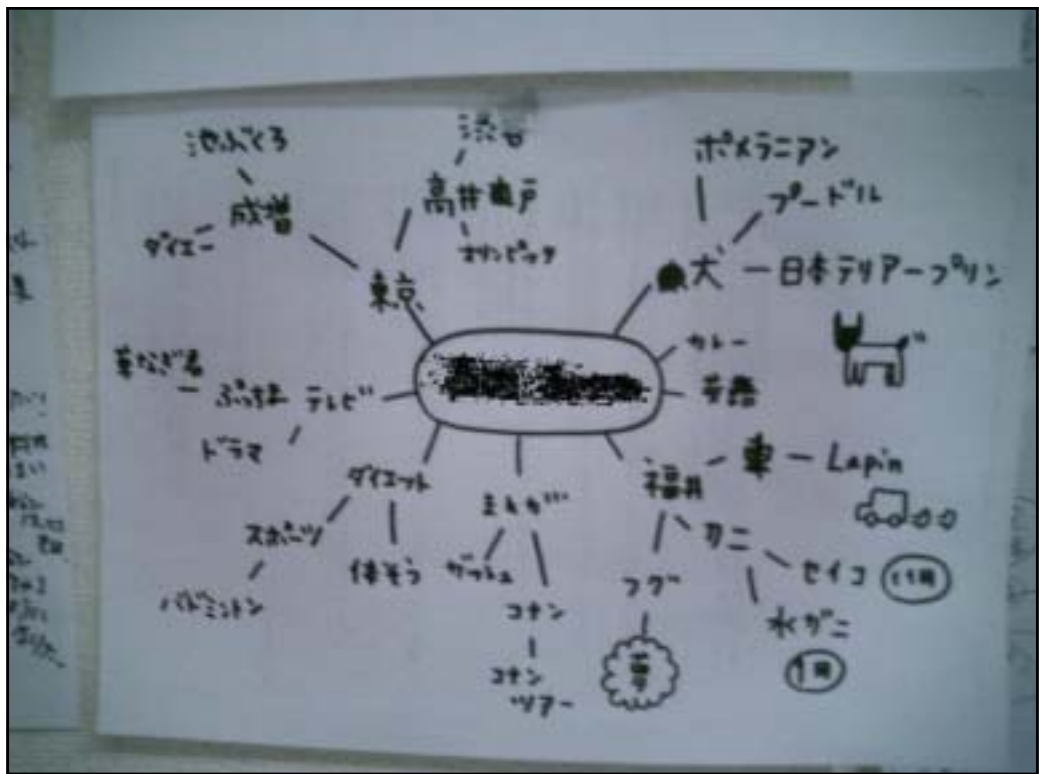 池ぶくろ
成増
ダイエー
渋谷
高井戸
オリンピック
東京
ポメラニアン
プードル
犬
日本テリアープリン
カレー
草なぎ君
ぷっすま
テレビ
ドラマ
ダイエット
スポーツ
バドミントン
体そう
まんが
ガッシュ
コナン
コナン
ツアー
福井
車
Lapin
カニ
セイコ
水ガニ
フグ
夢